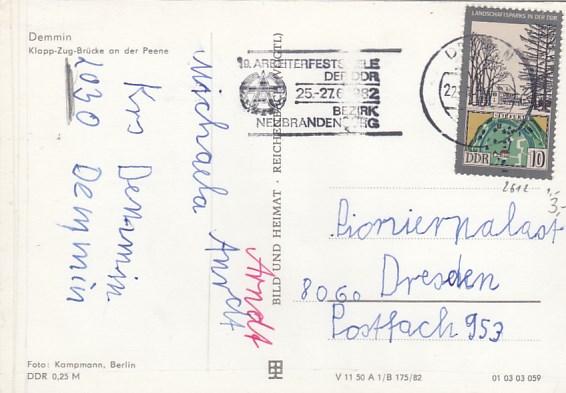 Demmin
Klapp-Zug-Brücke an der Peene
Michaela Arndt
Arndt
Krs Demmin
2030 Demmin
Foto: Kampmann, Berlin
DDR 0,25 M
BILD UND HEIMAT · REICHENBACH (VOGTL)
19. ARBEITERFESTSPIELE
DER DDR
25.-27.6.1982
BEZIRK
NEUBRANDENBURG
LANDSCHAFTSPARKS IN DER DDR
DDR 10
2612
3,-
Pionierpalast
8060 Dresden
Postfach 953
V 11 50 A 1/B 175/82
01 03 03 059